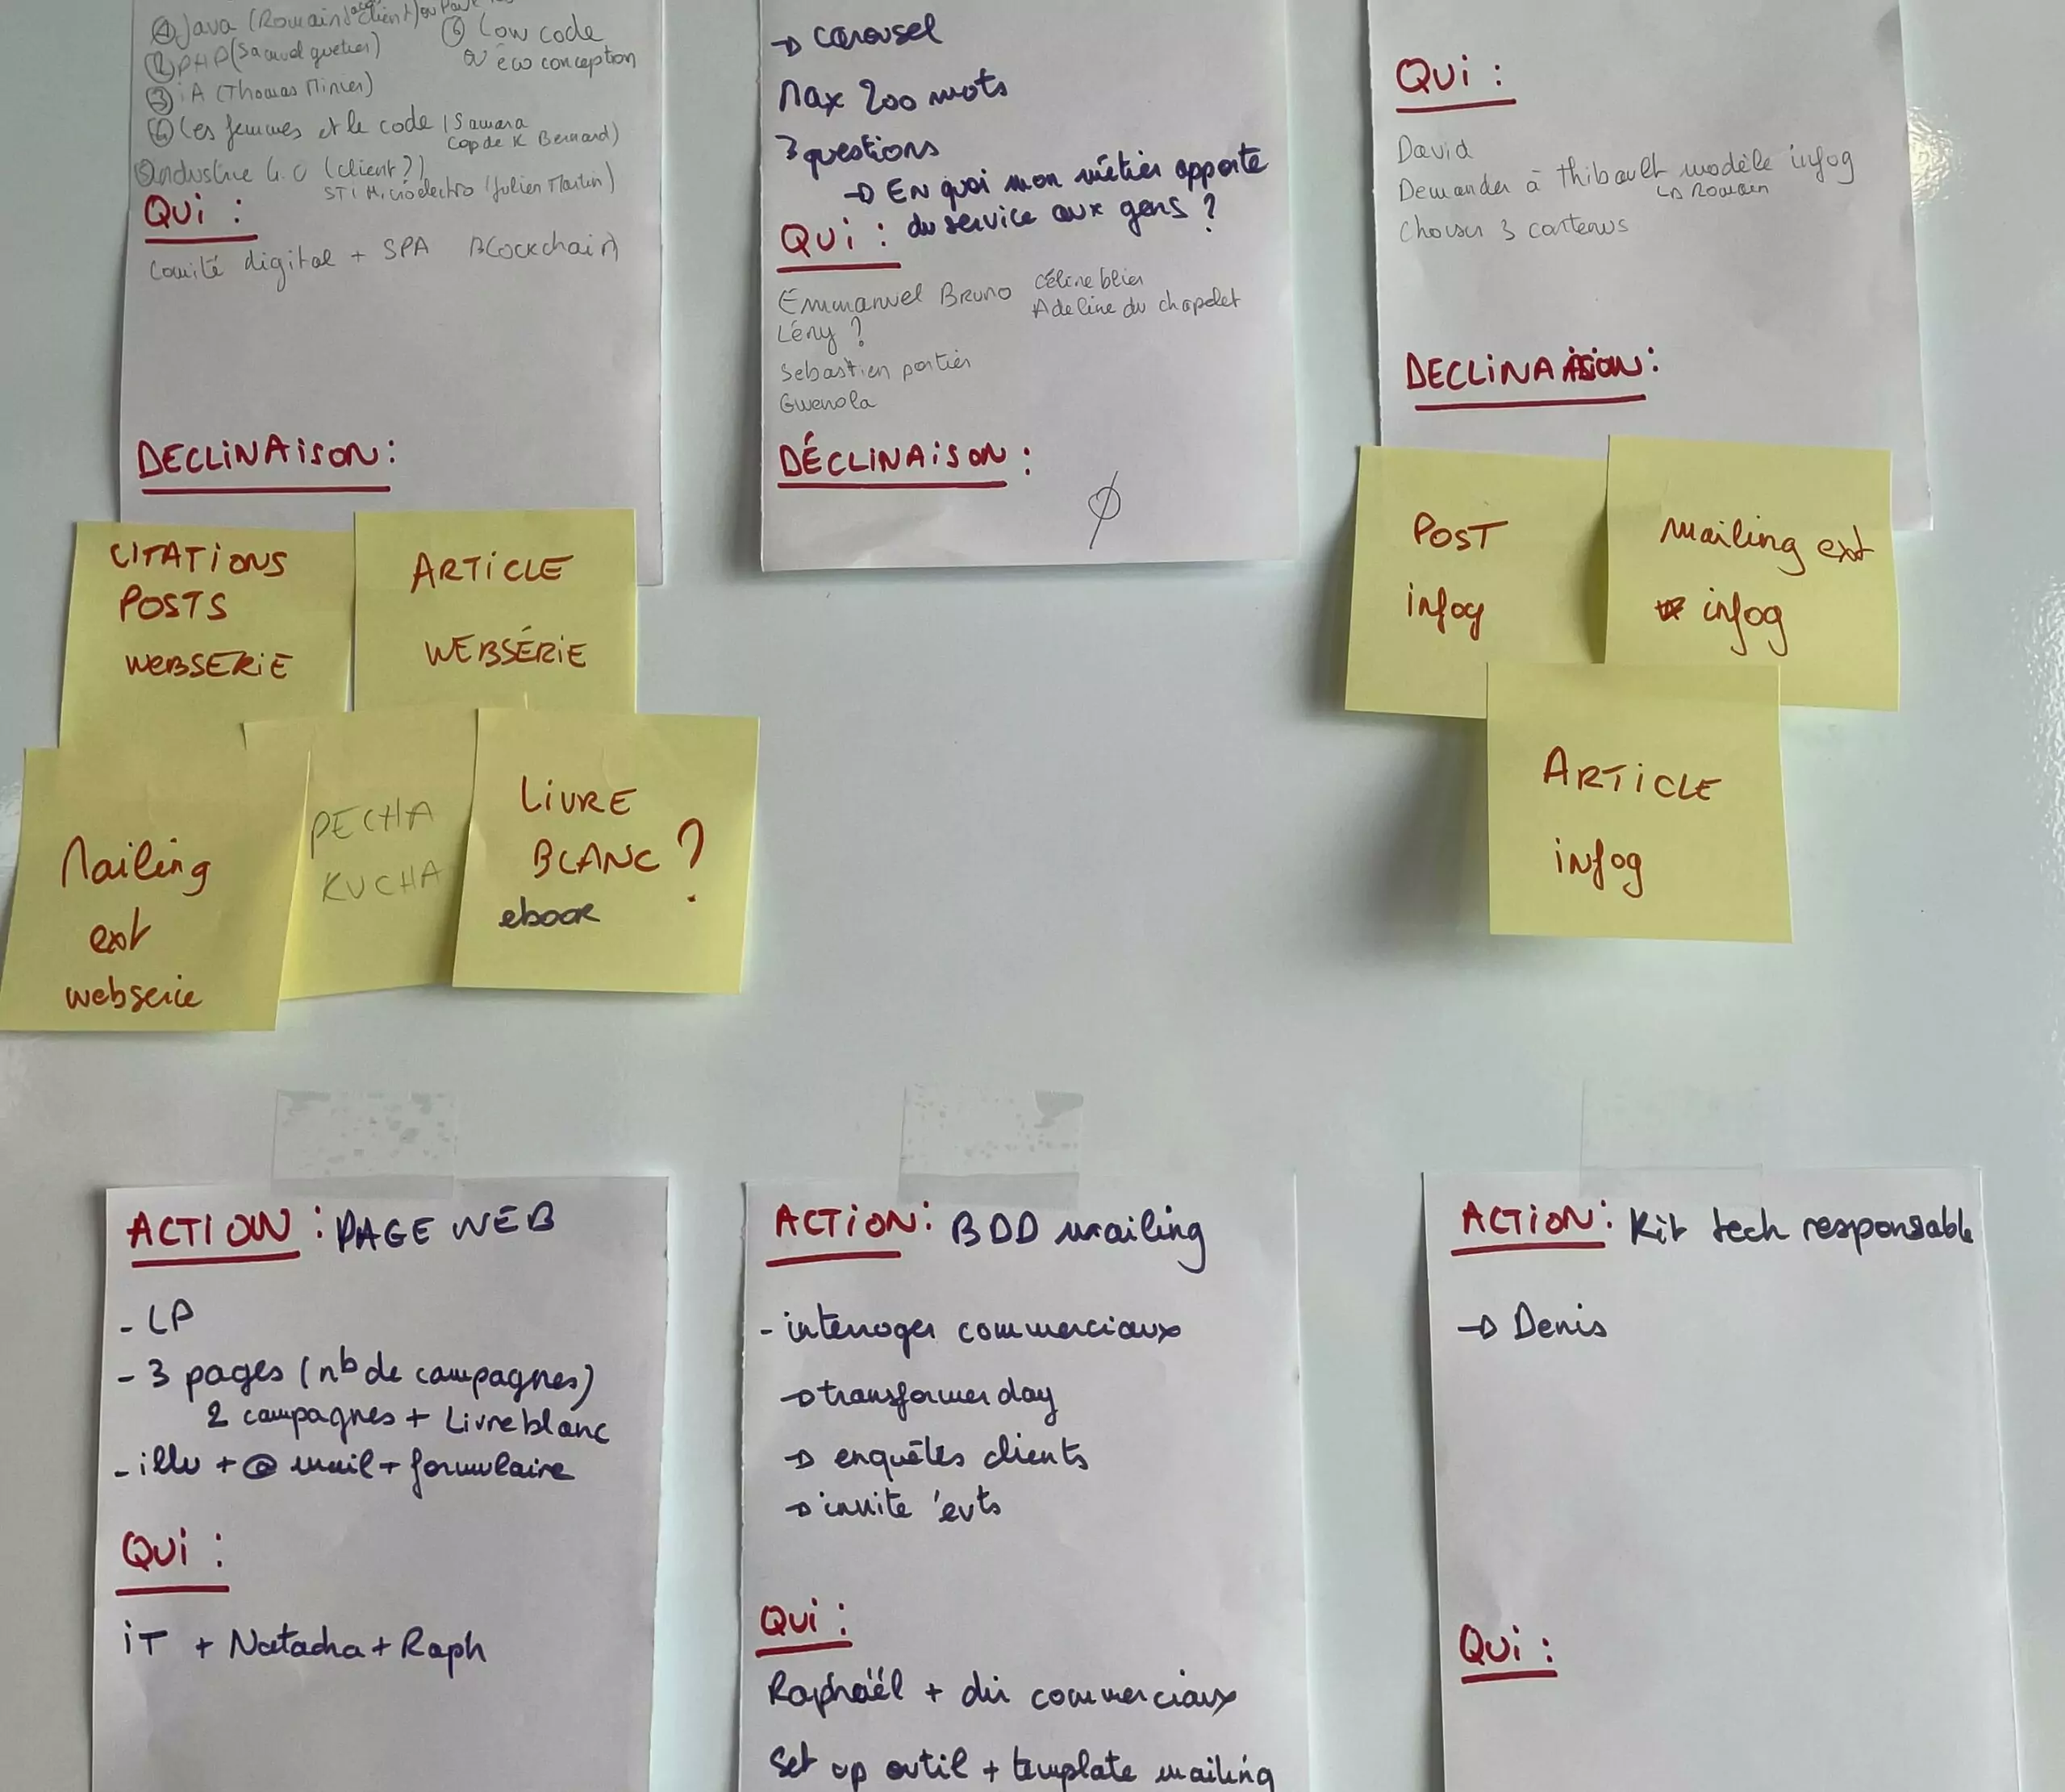 ① Java (Romain
client) ou
② PHP (Samuel
③ iA (Thomas Minier)
④ Les femmes et le code (Samara
Cap de K Bernard)
⑤ industrie 4.0 (client?)
STI Microélectro (Julien Martin)
⑥ Low code
ou éco conception
QUi :
Comité digital + SPA BLOCKchain
DECLiNAisoN :
CITATiONS
POSTS
WEBSERiE
ARTiCLE
WEBSÉRiE
Mailing
ext
webserie
PECHA
KUCHA
LiVRE
BLANC ?
ebook
→ carousel
Max 200 mots
3 questions
→ En quoi mon métier apporte
du service aux gens ?
QUi :
Emmanuel Bruno
Céline blier
Adeline du chapelet
Lény ?
Sebastien portier
Gwenola
DÉCLiNAiSON :
∅
QUi :
David
Demander à thibault modèle infog
↳ Romain
Choisir 3 contenus
DECLiNAiSON :
POST
infog
mailing ext
infog
ARTiCLE
infog
ACTION : PAGE WEB
- LP
- 3 pages (nb de campagnes)
2 campagnes + Livre blanc
- illu + @ mail + formulaire
QUi :
iT + Natacha + Raph
ACTiON : BDD mailing
- interroger commerciaux
→ transformer day
→ enquêtes clients
→ invite évts
QUi :
Raphaël + dir commerciaux
Set up outil + template mailing
ACTiON : Kit tech responsable
→ Denis
QUi :